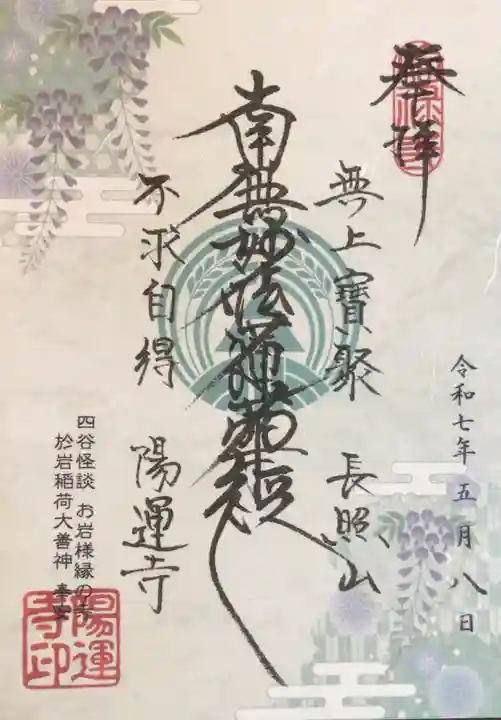 奉拝
令和七年五月八日
無上寶聚 長照山
南無妙法蓮華経
不求自得 陽運寺
四谷怪談 お岩様縁の寺
於岩稲荷大善神 奉安
陽運
寺印